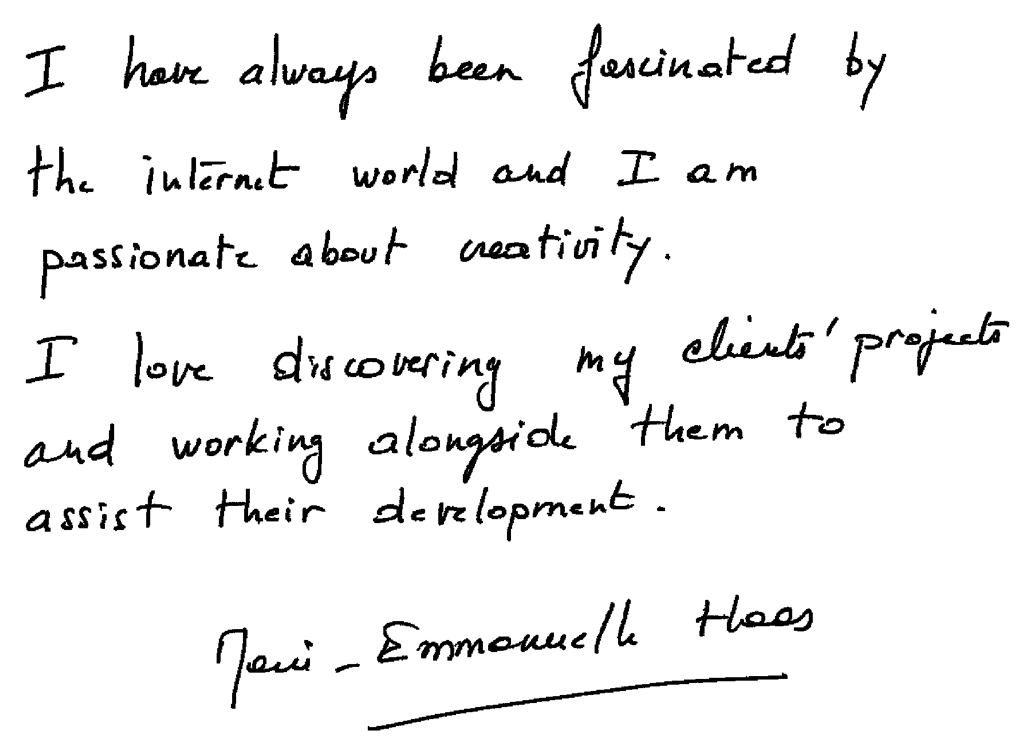 I have always been fascinated by
the internet world and I am
passionate about creativity.
I love discovering my clients' projects
and working alongside them to
assist their development.
Marie-Emmanuelle Haas